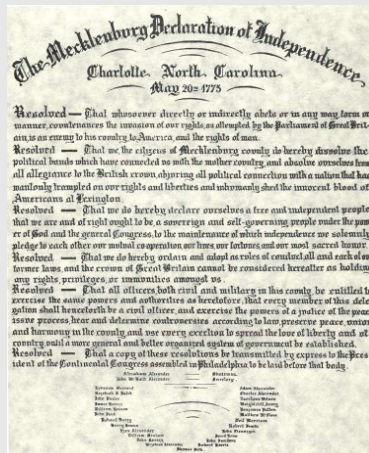 The Mecklenburg Declaration of Independence
Charlotte, North Carolina
May 20th 1775
Resolved — That whosoever directly or indirectly abets or in any way form or
manner, countenances the invasion of our rights, as attempted by the Parliament of Great Brit-
ain, is an enemy to his country, to America, and the rights of men.
Resolved — That we, the citizens of Mecklenburg county do hereby dissolve the
political bands which have connected us with the mother country and absolve ourselves from
all allegiance to the British crown, abjuring all political connection with a nation that has
wantonly trampled on our rights and liberties and inhumanly shed the innocent blood of
Americans at Lexington.
Resolved — That we do hereby declare ourselves a free and independent people
that we are and of right ought to be a sovereign and self-governing people under the pow-
er of God and the general Congress; to the maintenance of which independence we solemnly
pledge to each other our mutual co-operation, our lives, our fortunes, and our most sacred honor.
Resolved — That we do hereby ordain and adopt as rules of conduct, all and each of our
former laws, and the crown of Great Britain cannot be considered hereafter as holding
any rights, privileges, or immunities amongst us.
Resolved — That all officers, both civil and military in this county, be entitled to
exercise the same powers and authorities as heretofore, that every member of this dele-
gation shall henceforth be a civil officer, and exercise the powers of a justice of the peace,
issue process, hear and determine controversies according to law, preserve peace, union
and harmony in the county, and use every exertion to spread the love of liberty and of
country until a more general and better organized system of government be established.
Resolved — That a copy of these resolutions be transmitted by express to the Pres-
ident of the Continental Congress assembled in Philadelphia to be laid before that body.
Abraham Alexander Chairman
John McKnitt Alexander Secretary